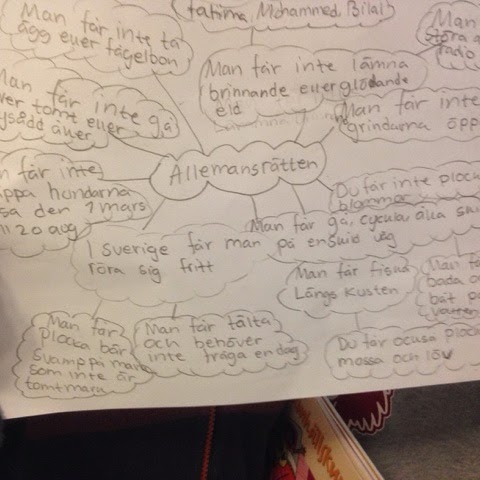 Man får inte ta
ägg eller fågelbon
fatima, Mohammed, Bilal
Man
störa
radio
Man får inte lämna
brinnande eller glödande
eld
Man får inte gå
över tomt eller
åller
Man får inte
grindarna öpp
Allemansrätten
får inte
äppa hundarna
den 1 mars
20 aug
Du får inte plock
blommor
Man får gå, cykla åka
på enskild väg
I sverige får man
röra sig fritt
Man får fiska
Längs kusten
Man få
bada o
båt på
vatten
Man får
Plocka bär
svamp på mark
som inte är
tomtmark
Man får tälta
och behöver
inte fråga en dag
Du får ocksa plock
mossa och löv